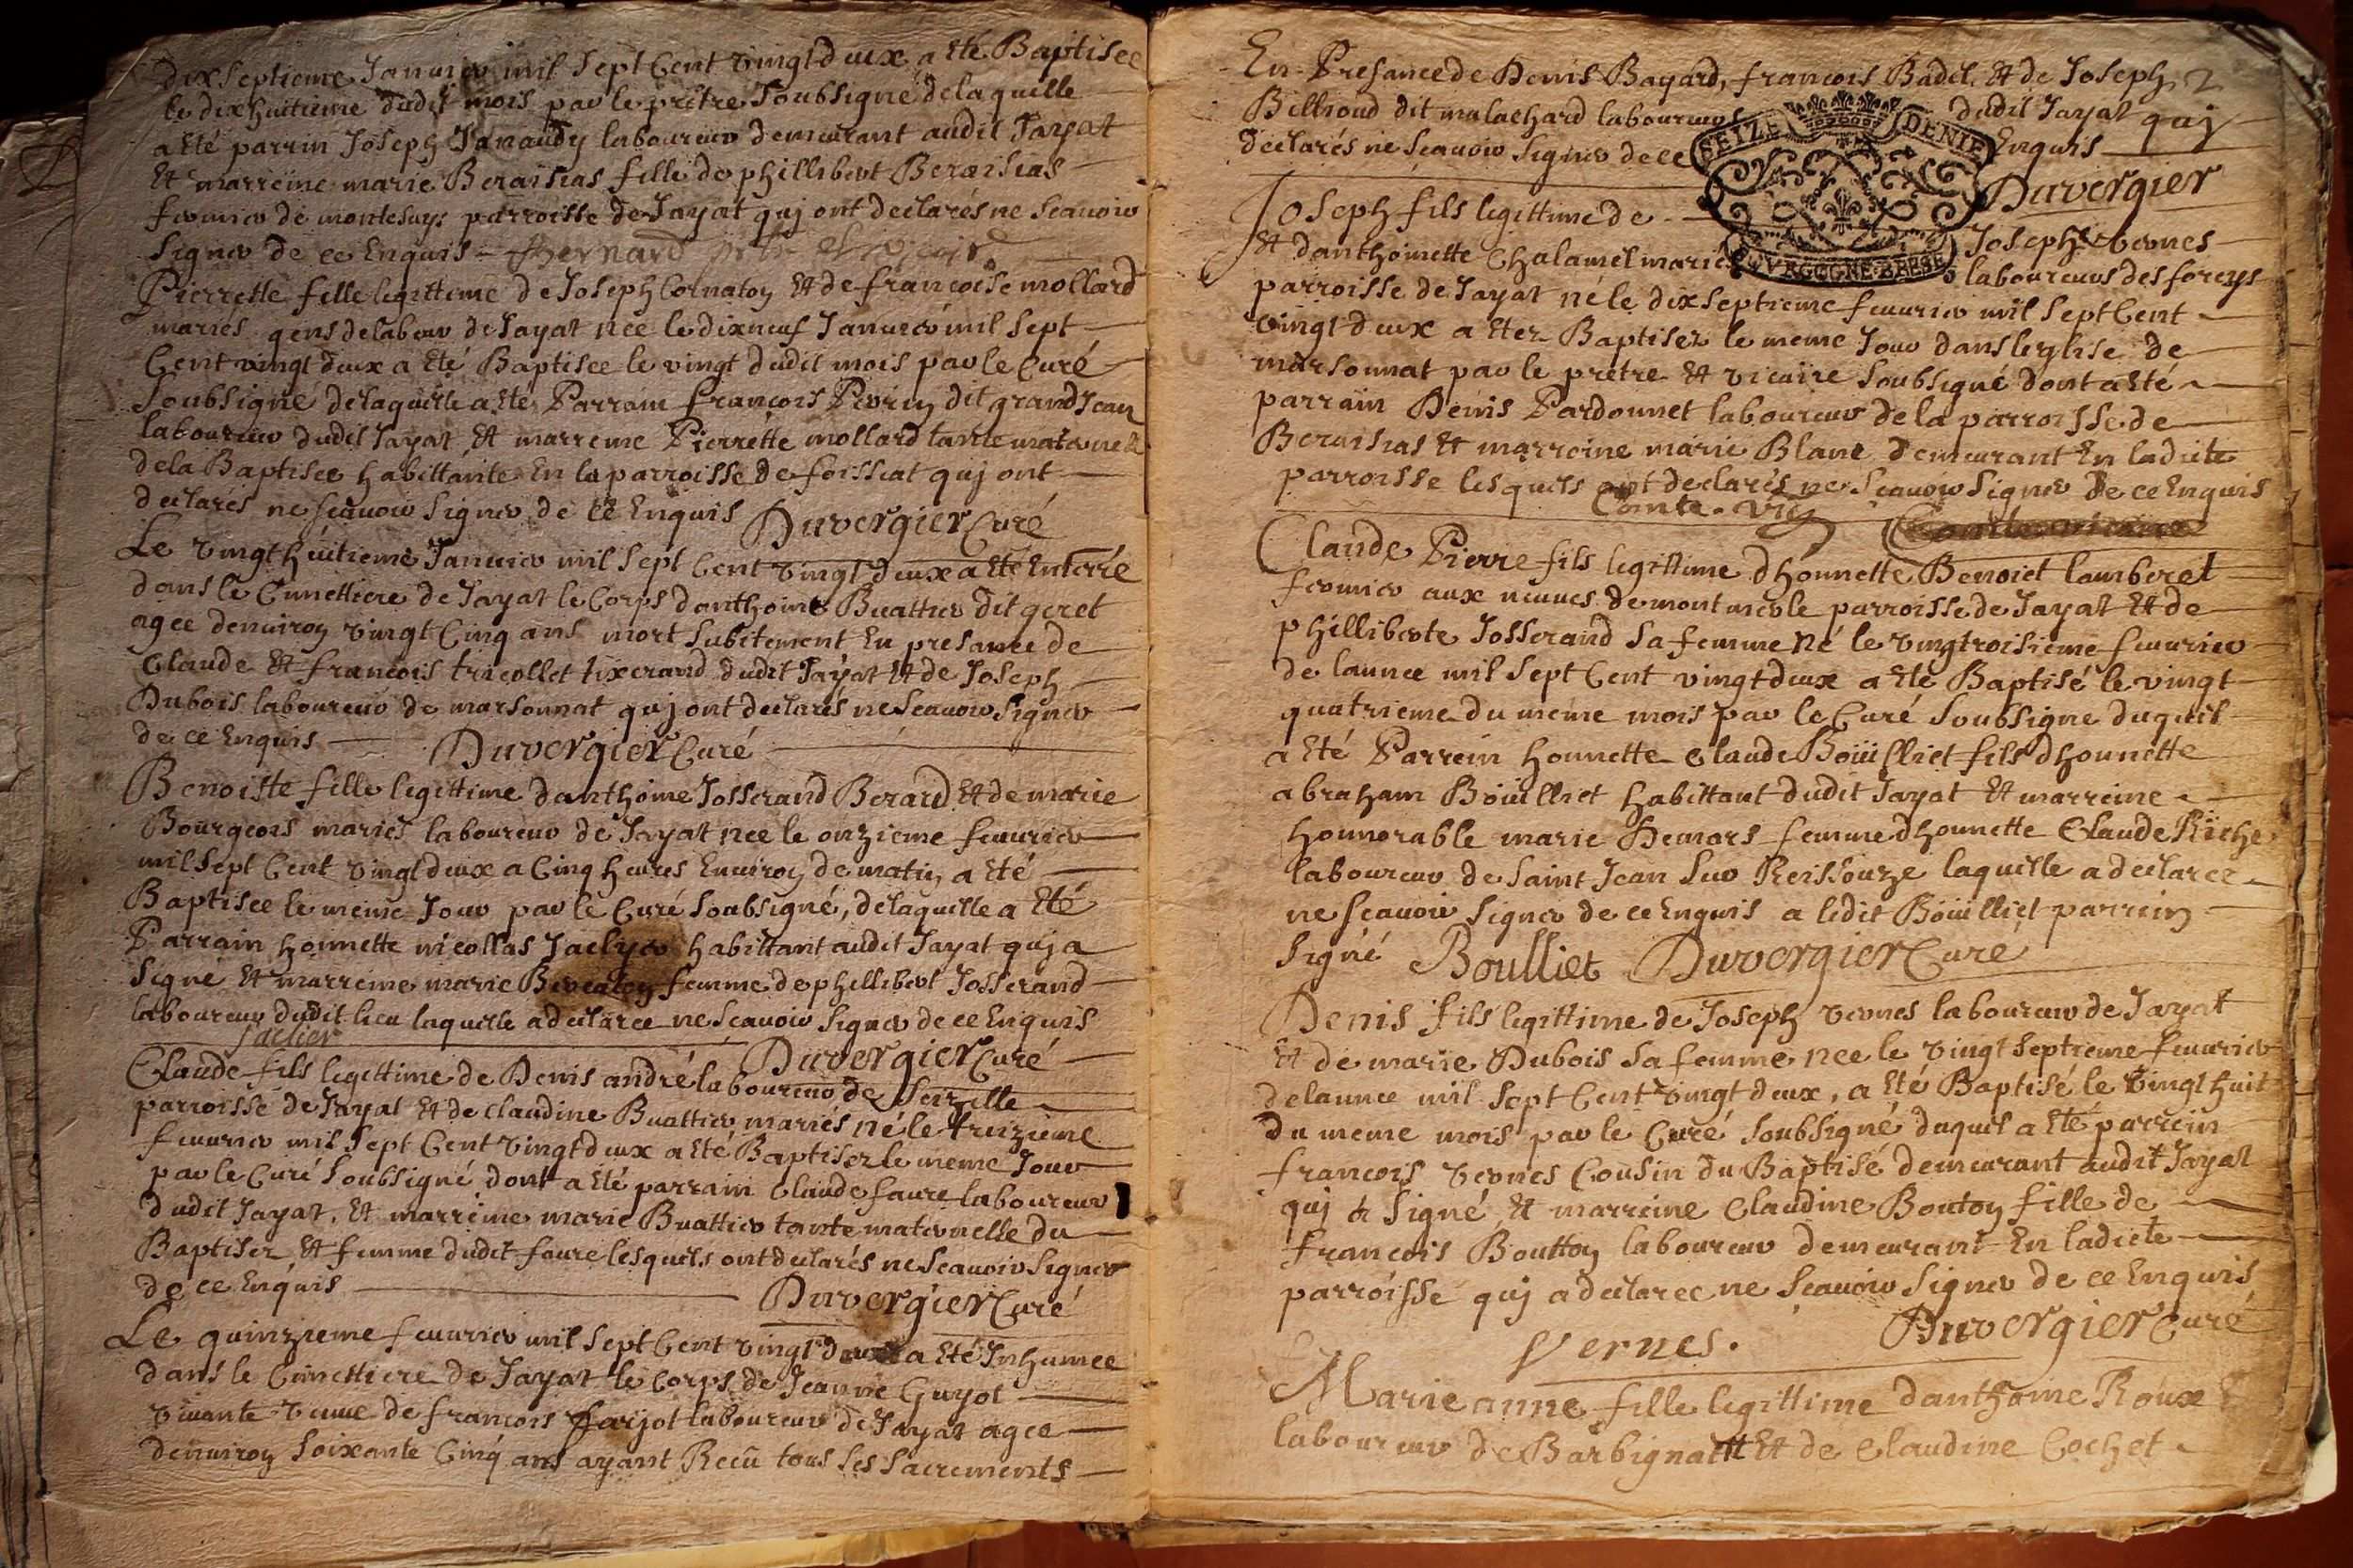 dixseptieme Januier mil Sept Cent vingt deux a Eté Baptisee
le dixhuitieme dudit mois par le prêtre Soubsigné delaquille
a Eté parrin Joseph Janaudy laboureur demeurant audit Jayat
Et marreine marie Beraisias fille de phillibert Beraisias
fermier de montesuys parroisse de Jayat quj ont declarés ne Scauoir
Signer de ce Enquis - Bernard
Pierrette fille legittime de Joseph Cornaton Et de francoise mollard
mariés gens delabeur de Jayat nee le dixneuf Januier mil Sept
Cent vingt deux a Eté Baptisee le vingt dudit mois par le Curé
Soubsigné delaquille a Eté Parrain françois Perrin dit grand Jean
laboureur dudit Jayat, Et marreine Pierrette mollard tante maternelle
de la Baptisee habittante En la parroisse de foissiat quj ont
declarés ne scauoir Signer de ce Enquis Duvergier Curé
Le vingt huitieme Januier mil Sept Cent vingt deux a Eté Enterré
dans le Cimettiere de Jayat le Corps danthoine Buattier dit geret
agee denuiron vingt Cinq ans mort Subitement En presance de
Claude Et francois tricollet tixerand dudit Jayat Et de Joseph
Dubois laboureur de marsonnat quj ont declarés ne Scauoir Signer
de ce Enquis Duvergier Curé
Benoiste fille legittime danthoine Josserand Berard Et de marie
Bourgeois mariés laboureur de Jayat nee le onzieme feuurier
mil Sept Cent vingt deux a Cinq heures Enuiron de matin a Eté
Baptisee le meme Jour par le Curé Soubsigné, delaquille a Eté
Parrain honnette nicollas Jaclyer habittant audit Jayat quj a
Signé Et marreine marie femme de phillibert Josserand
laboureur dudit lieu laquille a declaree ne Scauoir Signer de ce Enquis
Jaclier Duvergier Curé
Claude fils legittime de Denis andré laboureur de Seizille
parroisse de Jayat Et de Claudine Buattier mariés né le treizieme
feuurier mil Sept Cent vingt deux a Eté Baptisez le meme Jour
par le Curé Soubsigné dont a Eté parrain Claude faure laboureur
dudit Jayat, Et marreine marie Buattier tante maternelle du
Baptisez Et femme dudit faure lesquils ont declarés ne Scauoir Signer
de ce Enquis Duvergier Curé
Le quinzieme feuurier mil Sept Cent vingt deux a Eté Inhumee
dans le Cimettiere de Jayat le Corps de Jeanne Guyot
viuante veuue de francois farjot laboureur de Jayat agee
denuiron Soixante Cinq ans ayant Recû tous ses Sacrements
En Presance de Denis Bayard, francois Badel, Et de Joseph 2
Billioud dit malachard laboureurs dudit Jayat quj
declarés ne Scauoir Signer de ce Enquis
SEIZE DENIE
BOVRGOGNE·BRESSE
Duvergier
Joseph fils legittime de Joseph vernes
Et danthoinette Chalamel mariés laboureurs des foreys
parroisse de Jayat né le dix Septieme feuurier mil Sept Cent
vingt deux a Etez Baptisez le meme Jour dans leglise de
marsonnat par le prêtre Et vicaire Soubsigné dont a Eté
parrain Denis Pardonnet laboureur de la parroisse de
Beraisias Et marreine marie Blanc demeurant En ladicte
parroisse lesquils ont declarés ne Scauoir Signer de ce Enquis
Comte . vic
Claude Pierre fils legittime dhonnette Benoict lamberet
fermier aux neuues de montmerle parroisse de Jayat Et de
philliberte Josserand Sa femme Né le vingtroisieme feuurier
de lannee mil Sept Cent vingt deux a Eté Baptisé le vingt
quatrieme du meme mois par le Curé Soubsigne duquil
a Eté Parrein honnette Claude Boüilliet fils dhonnette
abraham Boüilliet habittant dudit Jayat Et marreine
honnorable marie Demars femme dhonnette Claude Riche
laboureur de Saint Jean Sur Reissouze laquille a declaree
ne scauoir Signer de ce Enquis a ledit Boüilliet parrein
Signé Boulliet Duvergier Curé
Denis fils legittime de Joseph vernes laboureur de Jayat
Et de marie Dubois Sa femme nee le vingt Septieme feuurier
delannee mil Sept Cent vingt deux, a Eté Baptisé le vingt huit
du meme mois par le Curé Soubsigné duquil a Eté parrein
francois vernes Cousin du Baptisé demeurant audit Jayat
quj a Signé, Et marreine Claudine Bouton fille de
francois Boutton laboureur demeurant En ladicte
parroisse quj a declaree ne Scauoir Signer de ce Enquis
Vernes. Duvergier Curé
Marie anne fille legittime danthoine Roux
laboureur de Barbignatt Et de Claudine Cochet